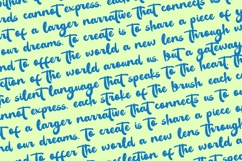 cannot express. each
of a larger narrative that connects is
our dreams. to create is to share a piece of y
and to offer the world a new lens through w
ction of the world around us. but a gateway
the silent language that speaks to the heart th
cannot express. each stroke of the brush, each o
t of a larger narrative that connects us to o
dreams. to create is to share a
to offer the world a new lens
reflection of the world